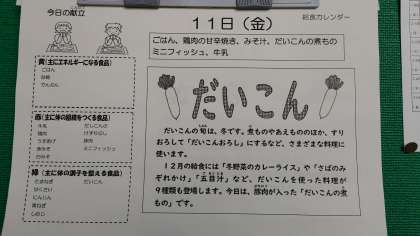 今日の献立
11日(金)
給食カレンダー
ごはん、鶏肉の甘辛焼き、みそ汁、だいこんの煮もの
ミニフィッシュ、牛乳
黄(主にエネルギーになる食品)
ごはん
砂糖
でんぷん
赤(主に体の組織をつくる食品)
牛乳
鶏肉
うすあげ
赤みそ
白みそ
豚肉
ミニフィッシュ
緑(主に体の調子を整える食品)
たまねぎ だいこん
はくさい
にんじん
青ねぎ
しめじ
だいこん
だいこんの旬は、冬です。煮ものやあえもののほか、すり
おろして「だいこんおろし」にするなど、さまざまな料理に
使います。
12月の給食には「冬野菜のカレーライス」や「さばのみ
ぞれかけ」「五目汁」など、だいこんを使った料理が
9種類も登場します。今日は、豚肉が入った「だいこんの煮
もの」です。